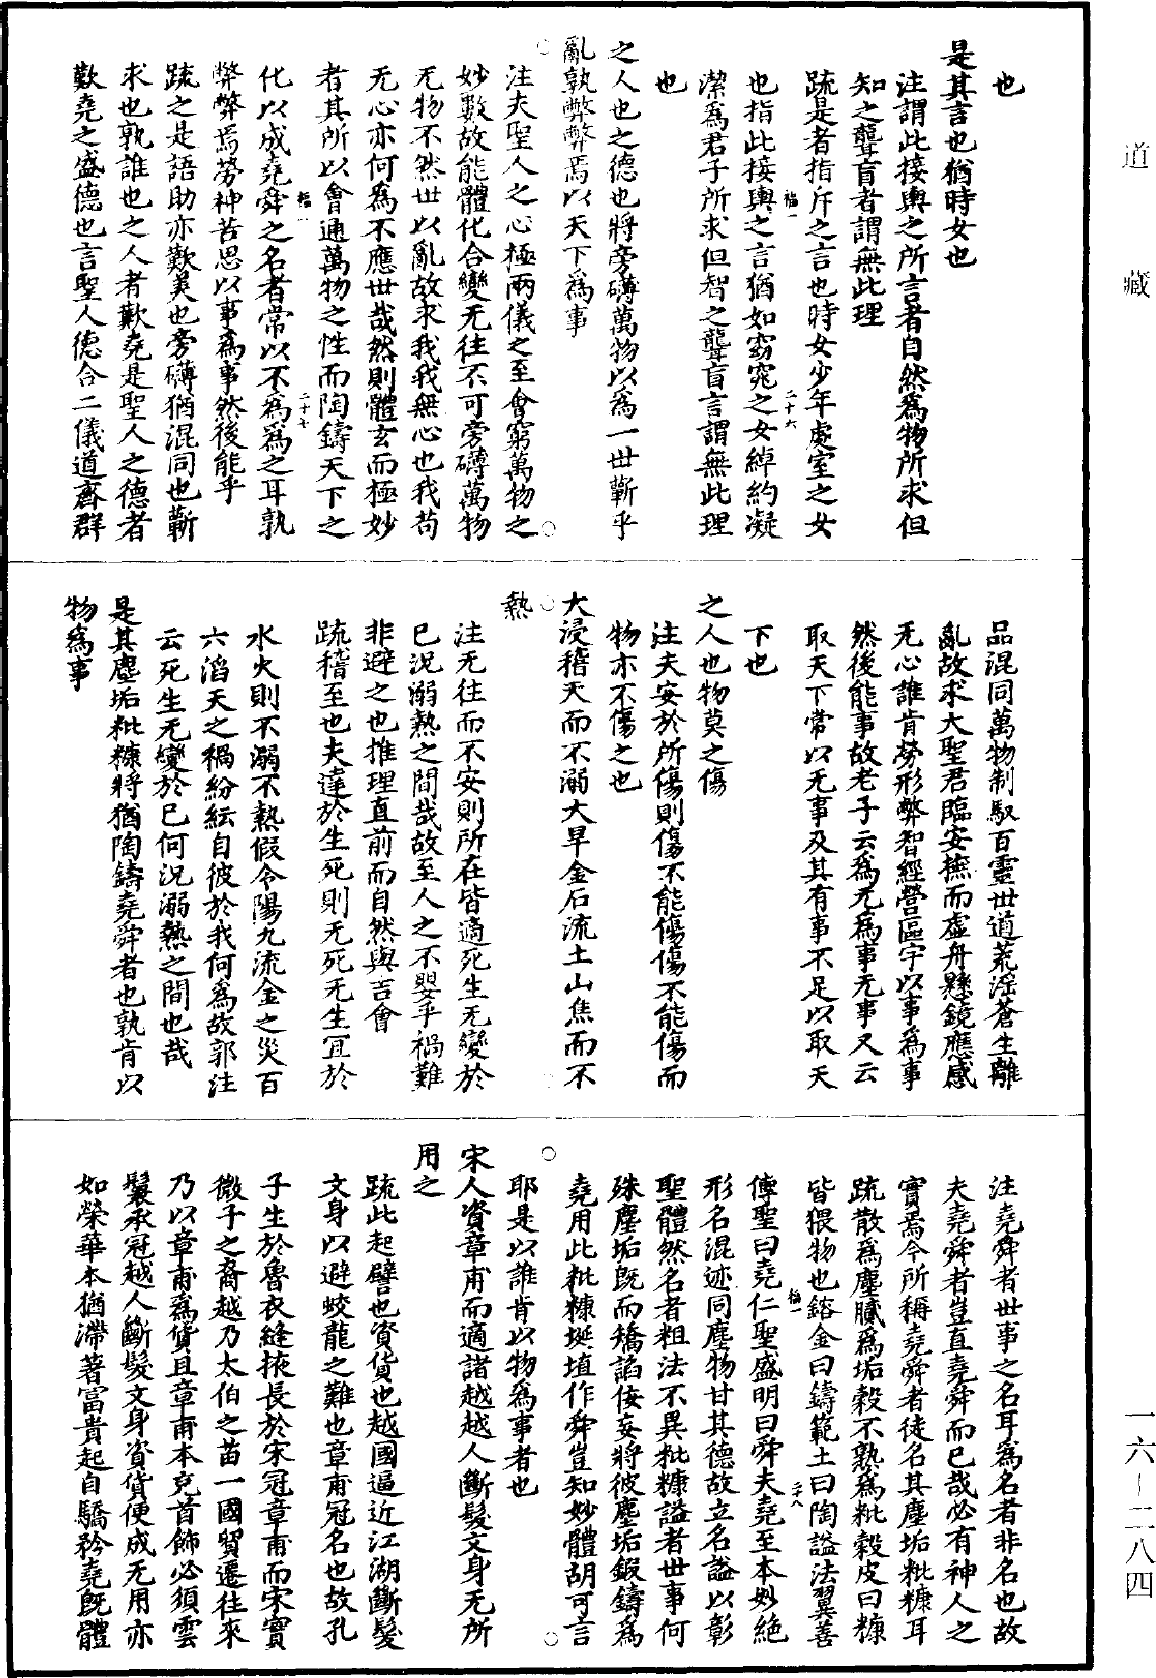 道藏
也
是其言也猶時女也
注謂此接輿之所言者自然爲物所求但
知之聾盲者謂無此理
疏是者指斥之言也時女少年處室之女
也指此接輿之言猶如窈窕之女綽約凝
潔爲君子所求但智之聾盲言謂無此理
也
之人也之德也將旁礴萬物以為一世蘄乎
亂孰弊弊焉以天下爲事
注夫聖人之心極兩儀之至會窮萬物之
妙數故能體化合變无往不可旁礴萬物
无物不然世以亂故求我我無心也我苟
无心亦何為不應世哉然則體玄而極妙
者其所以會通萬物之性而陶鑄天下之
化以成堯舜之名者常以不爲爲之耳孰
弊弊焉勞神苦思以事爲事然後能乎
疏之是語助亦歎美也旁礴猶混同也蘄
求也孰誰也之人者歎堯是聖人之德者
歎堯之盛德也言聖人德合二儀道齊群
品混同萬物制馭百靈世道荒淫蒼生離
亂故求大聖君臨安撫而虛舟懸鏡應感
无心誰肯勞形弊智經營區宇以事爲事
然後能事故老子云爲无爲事无事又云
取天下常以无事及其有事不足以取天
下也
之人也物莫之傷
注夫安於所傷則傷不能傷傷不能傷而
物亦不傷之也
大浸稽天而不溺大旱金石流土山焦而不
熱
注无往而不安則所在皆適死生无變於
已況溺熱之間哉故至人之不嬰乎禍難
非避之也推理直前而自然與吉會
疏稽至也夫達於生死則无死无生宜於
水火則不溺不熱假令陽九流金之災百
六滔天之禍紛紜自彼於我何爲故郭注
云死生无變於已何況溺熱之間也哉
是其塵垢粃糠將猶陶鑄堯舜者也孰肯以
物爲事
注堯舜者世事之名耳爲名者非名也故
夫堯舜者豈直堯舜而已哉必有神人之
實焉今所稱堯舜者徒名其塵垢粃糠耳
疏散爲塵膩爲垢穀不熟爲粃穀皮曰糠
皆猥物也鎔金曰鑄範土曰陶謚法翼善
傳聖曰堯仁聖盛明曰舜夫堯至本妙絶
形名混迹同塵物甘其德故立名謚以彰
聖體然名者粗法不異粃糠謚者世事何
殊塵垢既而矯諂佞妄將彼塵垢鍜鑄爲
堯用此粃糠埏埴作舜豈知妙體胡可言
耶是以誰肯以物爲事者也
宋人資章甫而適諸越越人斷髮文身无所
用之
疏此起譬也資貨也越國逼近江湖斷髮
文身以避蛟龍之難也章甫冠名也故孔
子生於魯衣縫掖長於宋冠章甫而宋實
微子之裔越乃太伯之苗一國貿遷往來
乃以章甫爲貨且章甫本充首飾必須雲
鬟承冠越人斷髮文身資貨便成无用亦
如榮華本猶滯著富貴起自驕矜堯既體
一六－二八四